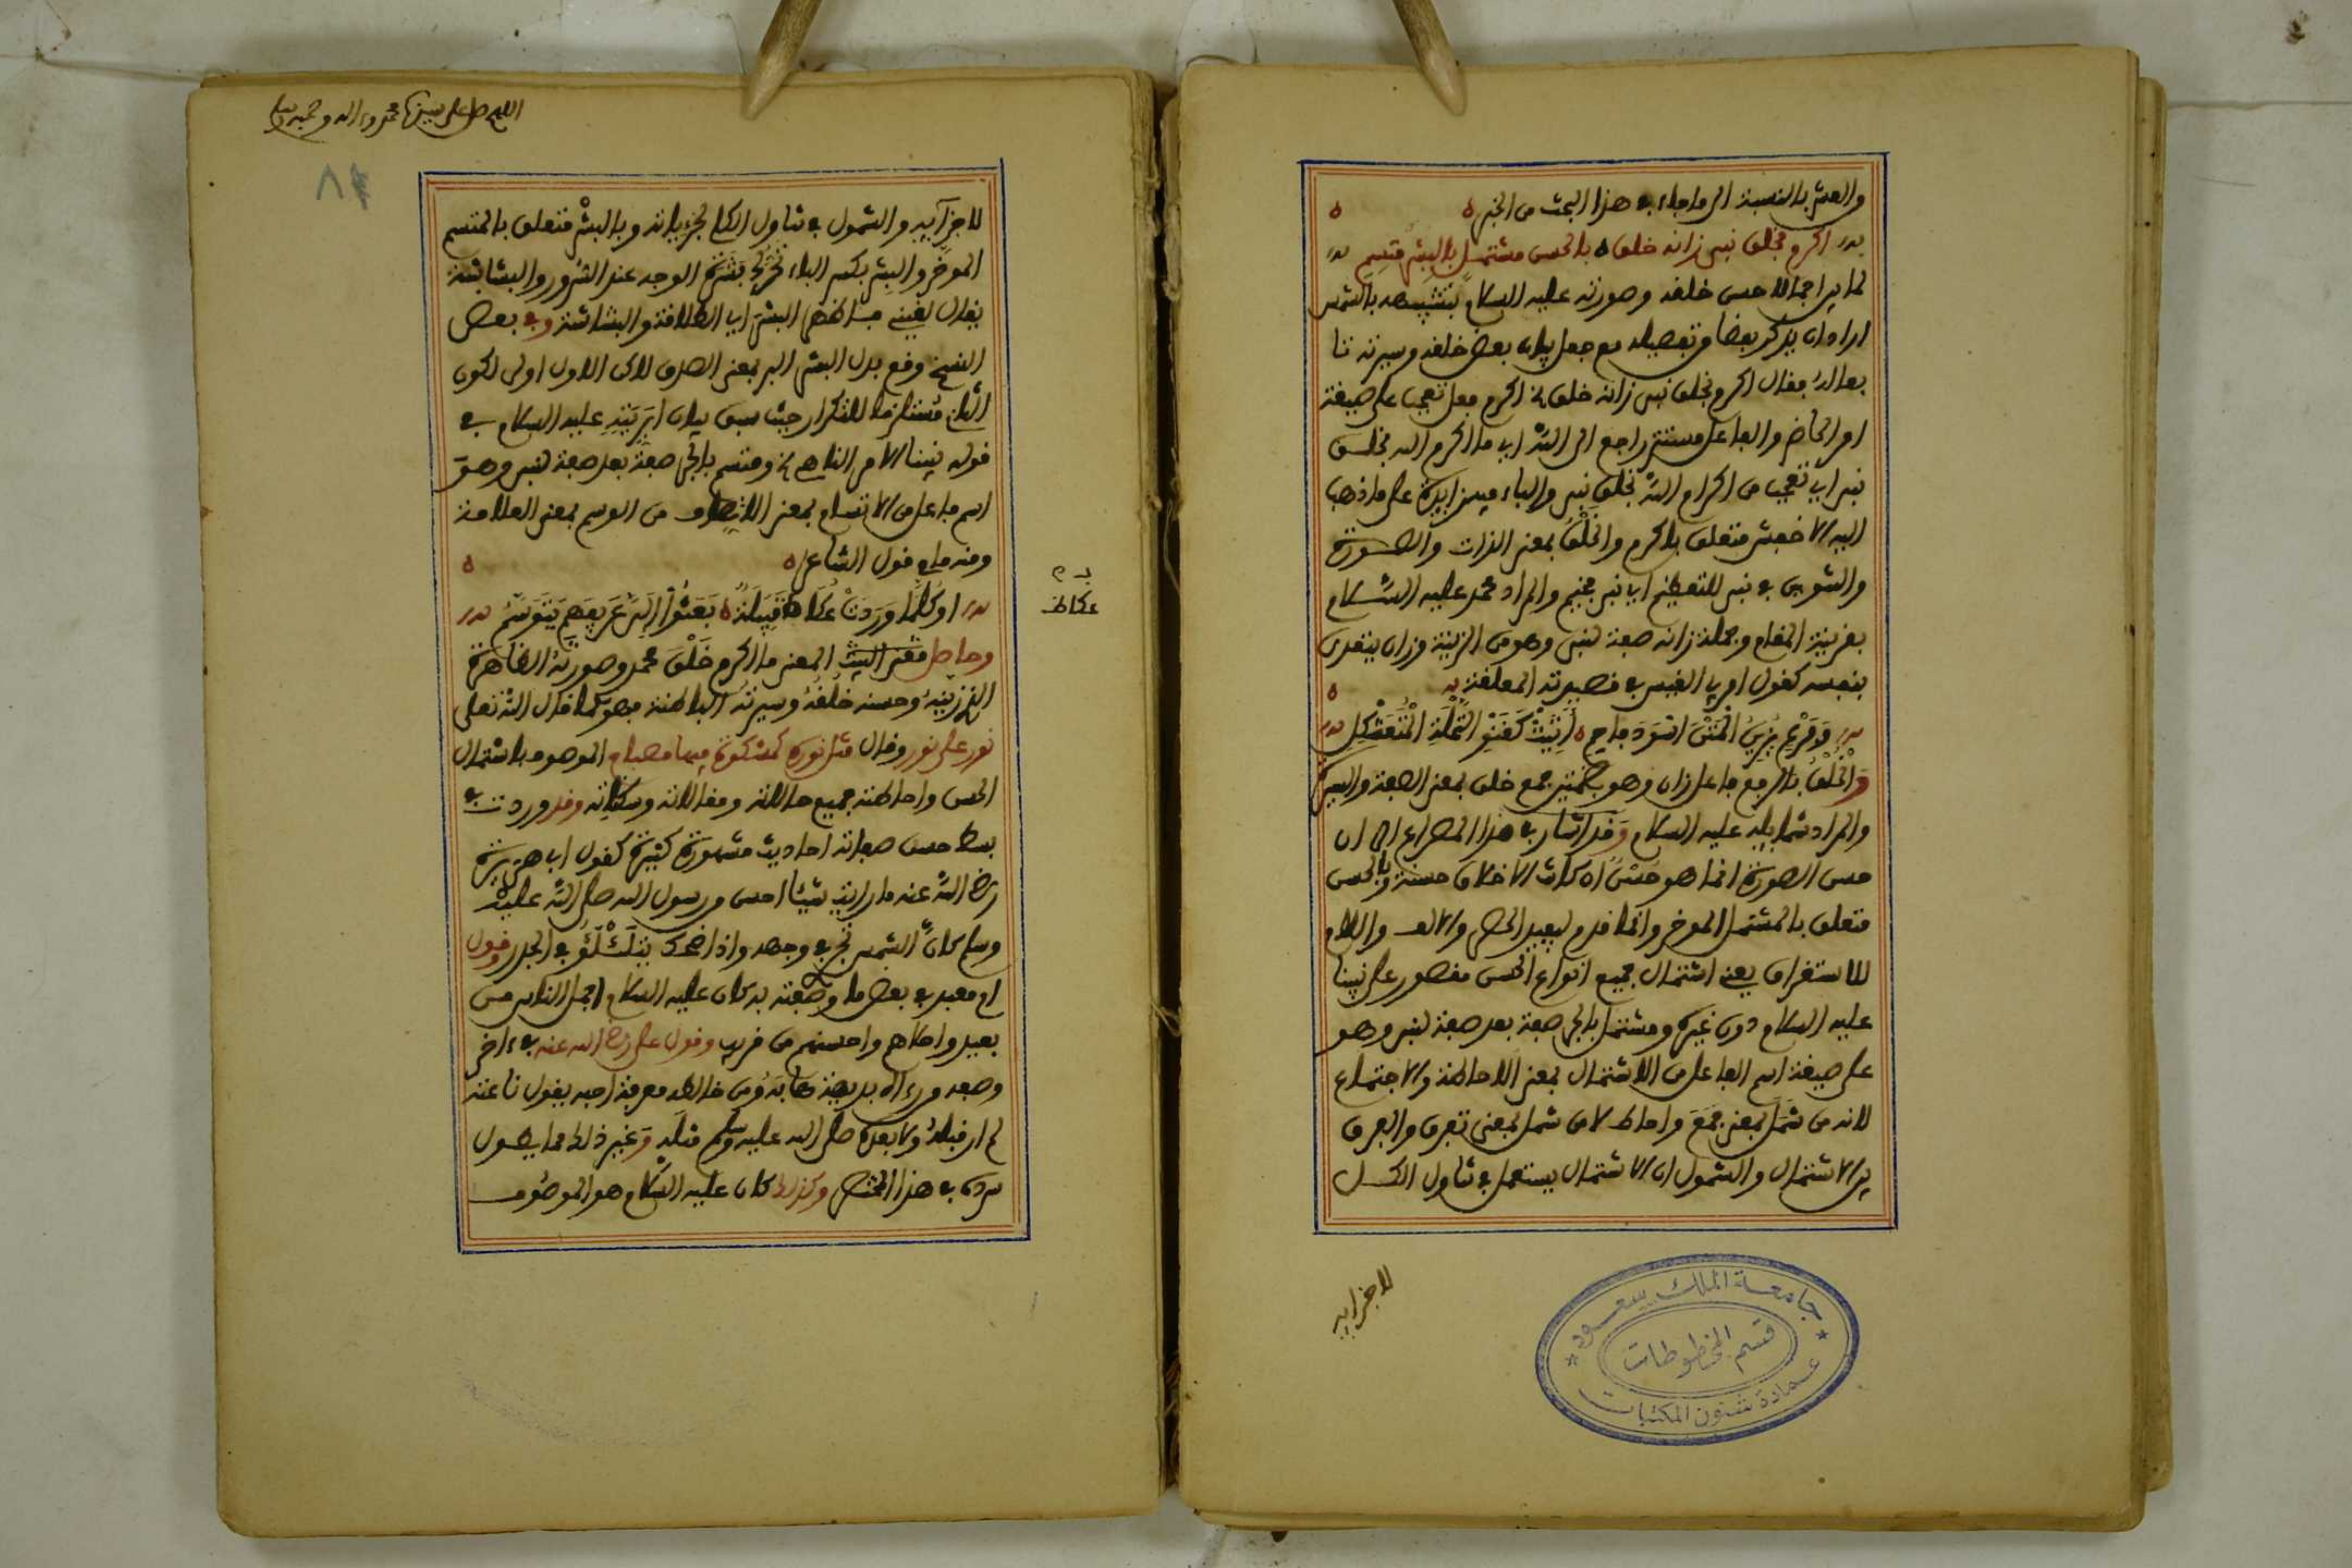 والعشر بالنسبة الى ما جاء في هذا البحث من الخبر ه ه
اكرم بخلق نبي زانه خلق ه بالحسن مشتمل بالبشر متسم
لما بين اجمالا حسن خلقه وصورته عليه السلام بتشبيهه بالشمس
اراد ان يذكر بعضا من تفصيله مع جعل بيان بعض خلقه وسيرته تا
بعا له فقال اكرم بخلق نبي زانه خلق الخ اكرم فعل تعجب على صيغة
امر الحاضر والفاعل مستتر راجع الى الله اي ما اكرم الله بخلق
نبي اي تعجب من اكرام الله بخلق نبي والباء فيه زايدة على ما ذهب
اليه الاخفش متعلق باكرم والخَلْق بمعنى الذات والصورة
والتنوين في نبي للتعظيم اي نبي عظيم والمراد محمد عليه السلام
بقرينة المقام وجملة زانه صفة لنبي وهو من الزينة وزان يتعدى
بنفسه كقول امرئ القيس في قصيدته المعلقة ه
وَفَرْعٍ يَزِينُ الْمَتْنَ اسْوَدَ فاحِمٍ ه أَثِيثٍ كَقِنْوِ النَّخْلَةِ الْمُتَعَثْكِلِ
وَالْخُلُقُ بالرفع فاعل زان وهو بضمتين جمع خلق بمعنى الصفة والسيرة
والمراد شمايله عليه السلام وقد اشار في هذا المصراع الى ان
حسن الصورة انما هو حَسَنٌ اذ كانت الاخلاق حسنة وبالحسن
متعلق بالمشتمل الموخر وانما قدم ليفيد الحصر والالف واللام
للاستغراق يعني اشتمال جميع انواع الحسن مقصور على نبينا
عليه السلام دون غيره ومشتمل بالجر صفة بعد صفة لنبي وهو
على صيغة اسم الفاعل من الاشتمال بمعنى الاحاطة والاجتماع
لانه من شمل بمعنى جمع واحاط لا من شمل بمعنى تفرق والفرق
بين الاشتمال والشمول ان الاشتمال يستعمل في تناول الكل
لاجزايه
جامعة الملك سعود
قسم المخطوطات
عمادة شئون المكتبات
اللهم صل على سيدنا محمد وءاله وصحبه وسلم
لاجزآيه والشمول في تناول الكلي لجزءياته وبالبشر متعلق بالمتسم
الموخر والبِشر بكسر الباء الوجه عند السرور والبشاشة
يقال لقيني فلان البشر اي الطلاقة والبشاشة وفي بعض
النسخ وقع بدل البشر البر بمعنى الصدق لاكن الاول اولى لكون
الثاني مستلزما للتكرار حيث سبق بيان ابريته عليه السلام في
قوله نبينا الامر الناهي الخ ومتسم بالجر صفة بعد صفة لنبي وهو
اسم فاعل من الاتسام بمعنى الاتصاف من الوسم بمعنى العلامة
ومنه ما في قول الشاعر ه ه
اوَكُلَّما وَرَدَتْ عُكاظَ قَبِيلَةٌ ه بَعَثُوا إِلَيَّ عَرِيفَهم يَتَوَسَّمُ
عكاظ
وحاصل معنى البيت المعنى ما اكرم خَلْق محمد وصورته الظاهرة
الذي زينه وحسنه خُلُقُهُ وسيرته الباطنة فهو كما قال الله تعلى
نور على نور وقال مثل نوره كمشكوة فيها مصباح الموصوف باشتمال
الحسن واحاطته جميع حالاته ومقالاته وسكناته وقد وردت في
بسط حسن صفاته احاديث مشهورة كثيرة كقول ابي هريرة
رضي الله عنه ما رايت شيئا احسن من رسول الله صلى الله عليه
وسلم كانّ الشمس تجري في وجهه واذا ضحك يتلالؤ في الجدر وقول
ام معبد في بعض ما وصفته به كان عليه السلام اجمل الناس من
بعيد واحلاهم واحسنهم من قريب وقول علي رضي الله عنه في ءاخر
وصفه من رءاه بديهة هابه ومن خالطه معرفة احبه يقول ناعته
لم ار قبله ولا بعده صلى الله عليه وسلم مثله وغير ذلك مما يطول
سرده في هذا المختصر وكذلك كان عليه السلام هو الموصوف